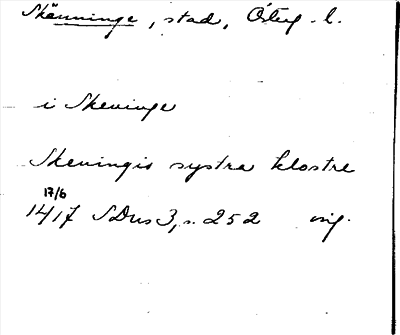 Skänninge, stad, Östg. l.
i Skeninge
Skeningis systra klostre
17/6
1417 SDns 3, s. 252 orig.